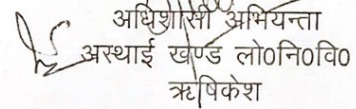 अधिशासी अभियन्ता
अस्थाई खण्ड लो०नि०वि०
ऋषिकेश